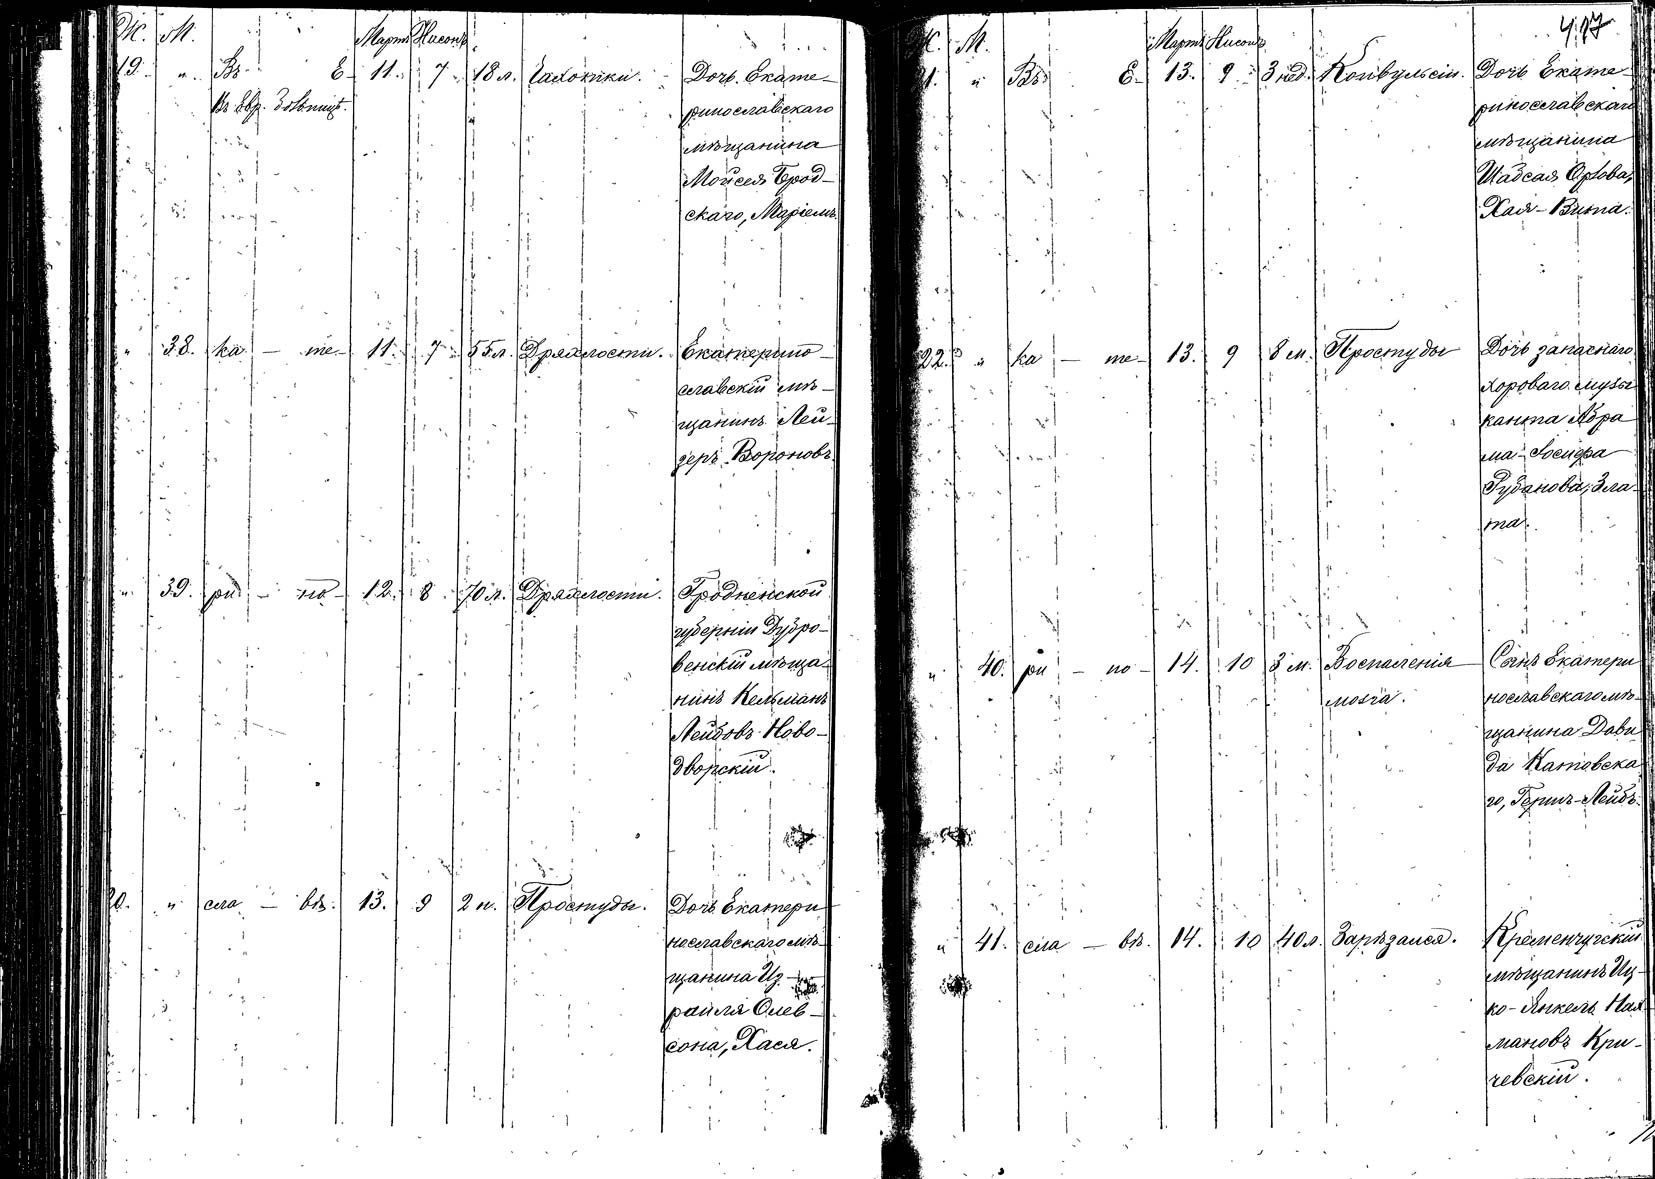 Ж. М. Мартъ Нисонъ
19. " Въ Е- 11. 7 18 л. Чахотки. Дочь Екате-
Въ Евр. больницѣ. ринославскаго
мѣщанина
Мойсея Брод-
скаго, Маріемъ.
" 38. ка - те- 11. 7 55 л. Дряхлости. Екатерино-
славскій мѣ-
щанинъ Лей-
зеръ Вороновъ.
" 39. ри - но- 12. 8 70 л. Дряхлости. Гродненской
губерніи Дубро-
венскій мѣща-
нинъ Кельманъ
Лейбовъ Ново-
дворскій.
20. " сла - вѣ. 13. 9 2 н. Простуды. Дочь Екатери-
нославскаго мѣ-
щанина Из-
раиля Олев-
сона, Хася.
477
Ж. М. Мартъ Нисонъ
21. " Въ Е- 13. 9 3 нед. Конвульсіи. Дочь Екате-
ринославскаго
мѣщанина
Шабсая Орлова,
Хая-Вита.
22. " ка - те- 13. 9 8 м. Простуды Дочь запаснаго
хороваго музы
канта Абра
ма-Іосифа
Рубанова, Зла-
та.
" 40. ри - но- 14. 10 3 м. Воспаленія Сынъ Екатери
мозга. нославскаго мѣ-
щанина Дави
да Катовска
го, Гершъ-Лейбъ.
" 41. сла - вѣ. 14. 10 40 л. Зарѣзался. Кременчугскій
мѣщанинъ Иц-
ко-Янкель Нах-
мановъ Кри-
чевскій.